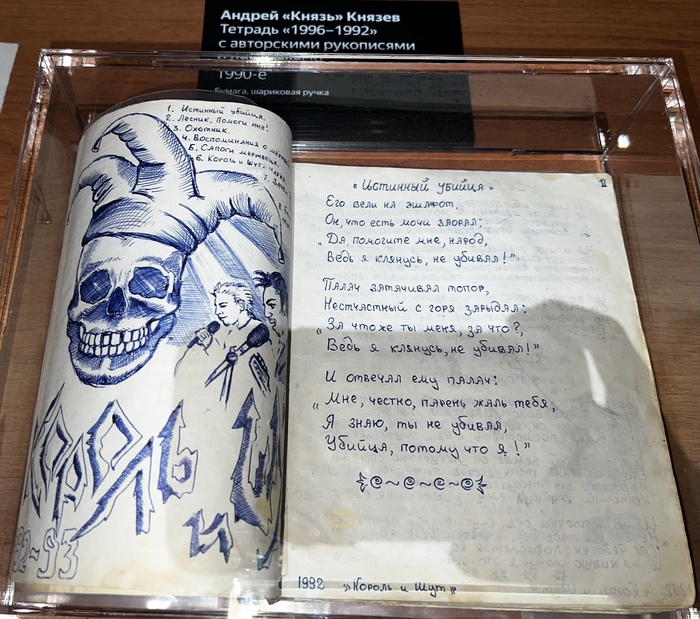 Андрей «Князь» Князев
Тетрадь «1996–1992»
с авторскими рукописями
1990-е
Бумага, шариковая ручка
1. Истинный убийца.
2. Лесник. Помоги мне!
3. Охотник.
4. Воспоминания о
5. Сапоги мертвеца.
6. Король и Шут
7.
8.
КОРОЛЬ
И
92-93
1
«Истинный убийца»
Его вели на эшафот,
Он, что есть мочи заорал:
„Да, помогите мне, народ,
Ведь я клянусь, не убивал!"
Палач затачивал топор,
Нестчастный с горя зарыдал:
„За что же ты меня, за что?,
Ведь я клянусь, не убивал!"
И отвечал ему палач:
„Мне, честно, парень жаль тебя,
Я знаю, ты не убивал,
Убийца, потому что я!"
1992 „Король и Шут"